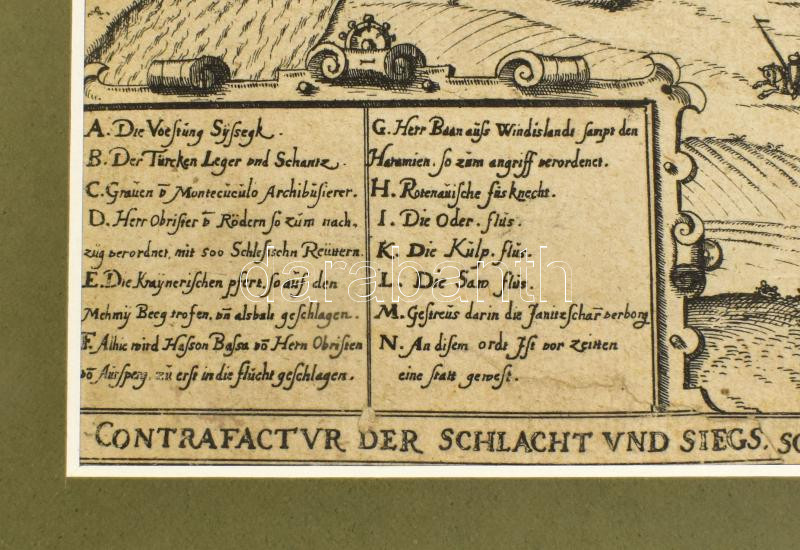 1
A. Die Voestung Sÿssegk.
B. Der Türcken Leger vnd Schantz.
C. Grauen v̄ Montecuculo Archibusierer.
D. Herr Obrister v̄ Rödern so zum nach,
zug verordnet, mit 500 Schlesischn Reüttern.
E. Die kraÿnerischen pfert, so auf den
Mehmÿ Beeg trofen, vn̄ alsbalt geschlagen.
F. Alhie wird Hasson Bassa vō Hern Obristen
vō Aursperg, zu erst in die flücht geschlagen.
G. Herr Baan auss Windislandt sampt den
Haramien, so zum angriff verordenet.
H. Rotenauische füs knecht.
I. Die Oder, flüs.
K. Die Külp, flus.
L. Die Saw, flüs.
M. Gestreüs darin die Janitzschar̄ verborg
N. An disem ordt Ist vor zeitten
eine statt gewest.
darabanth
CONTRAFACTVR DER SCHLACHT VND SIEGS, SO